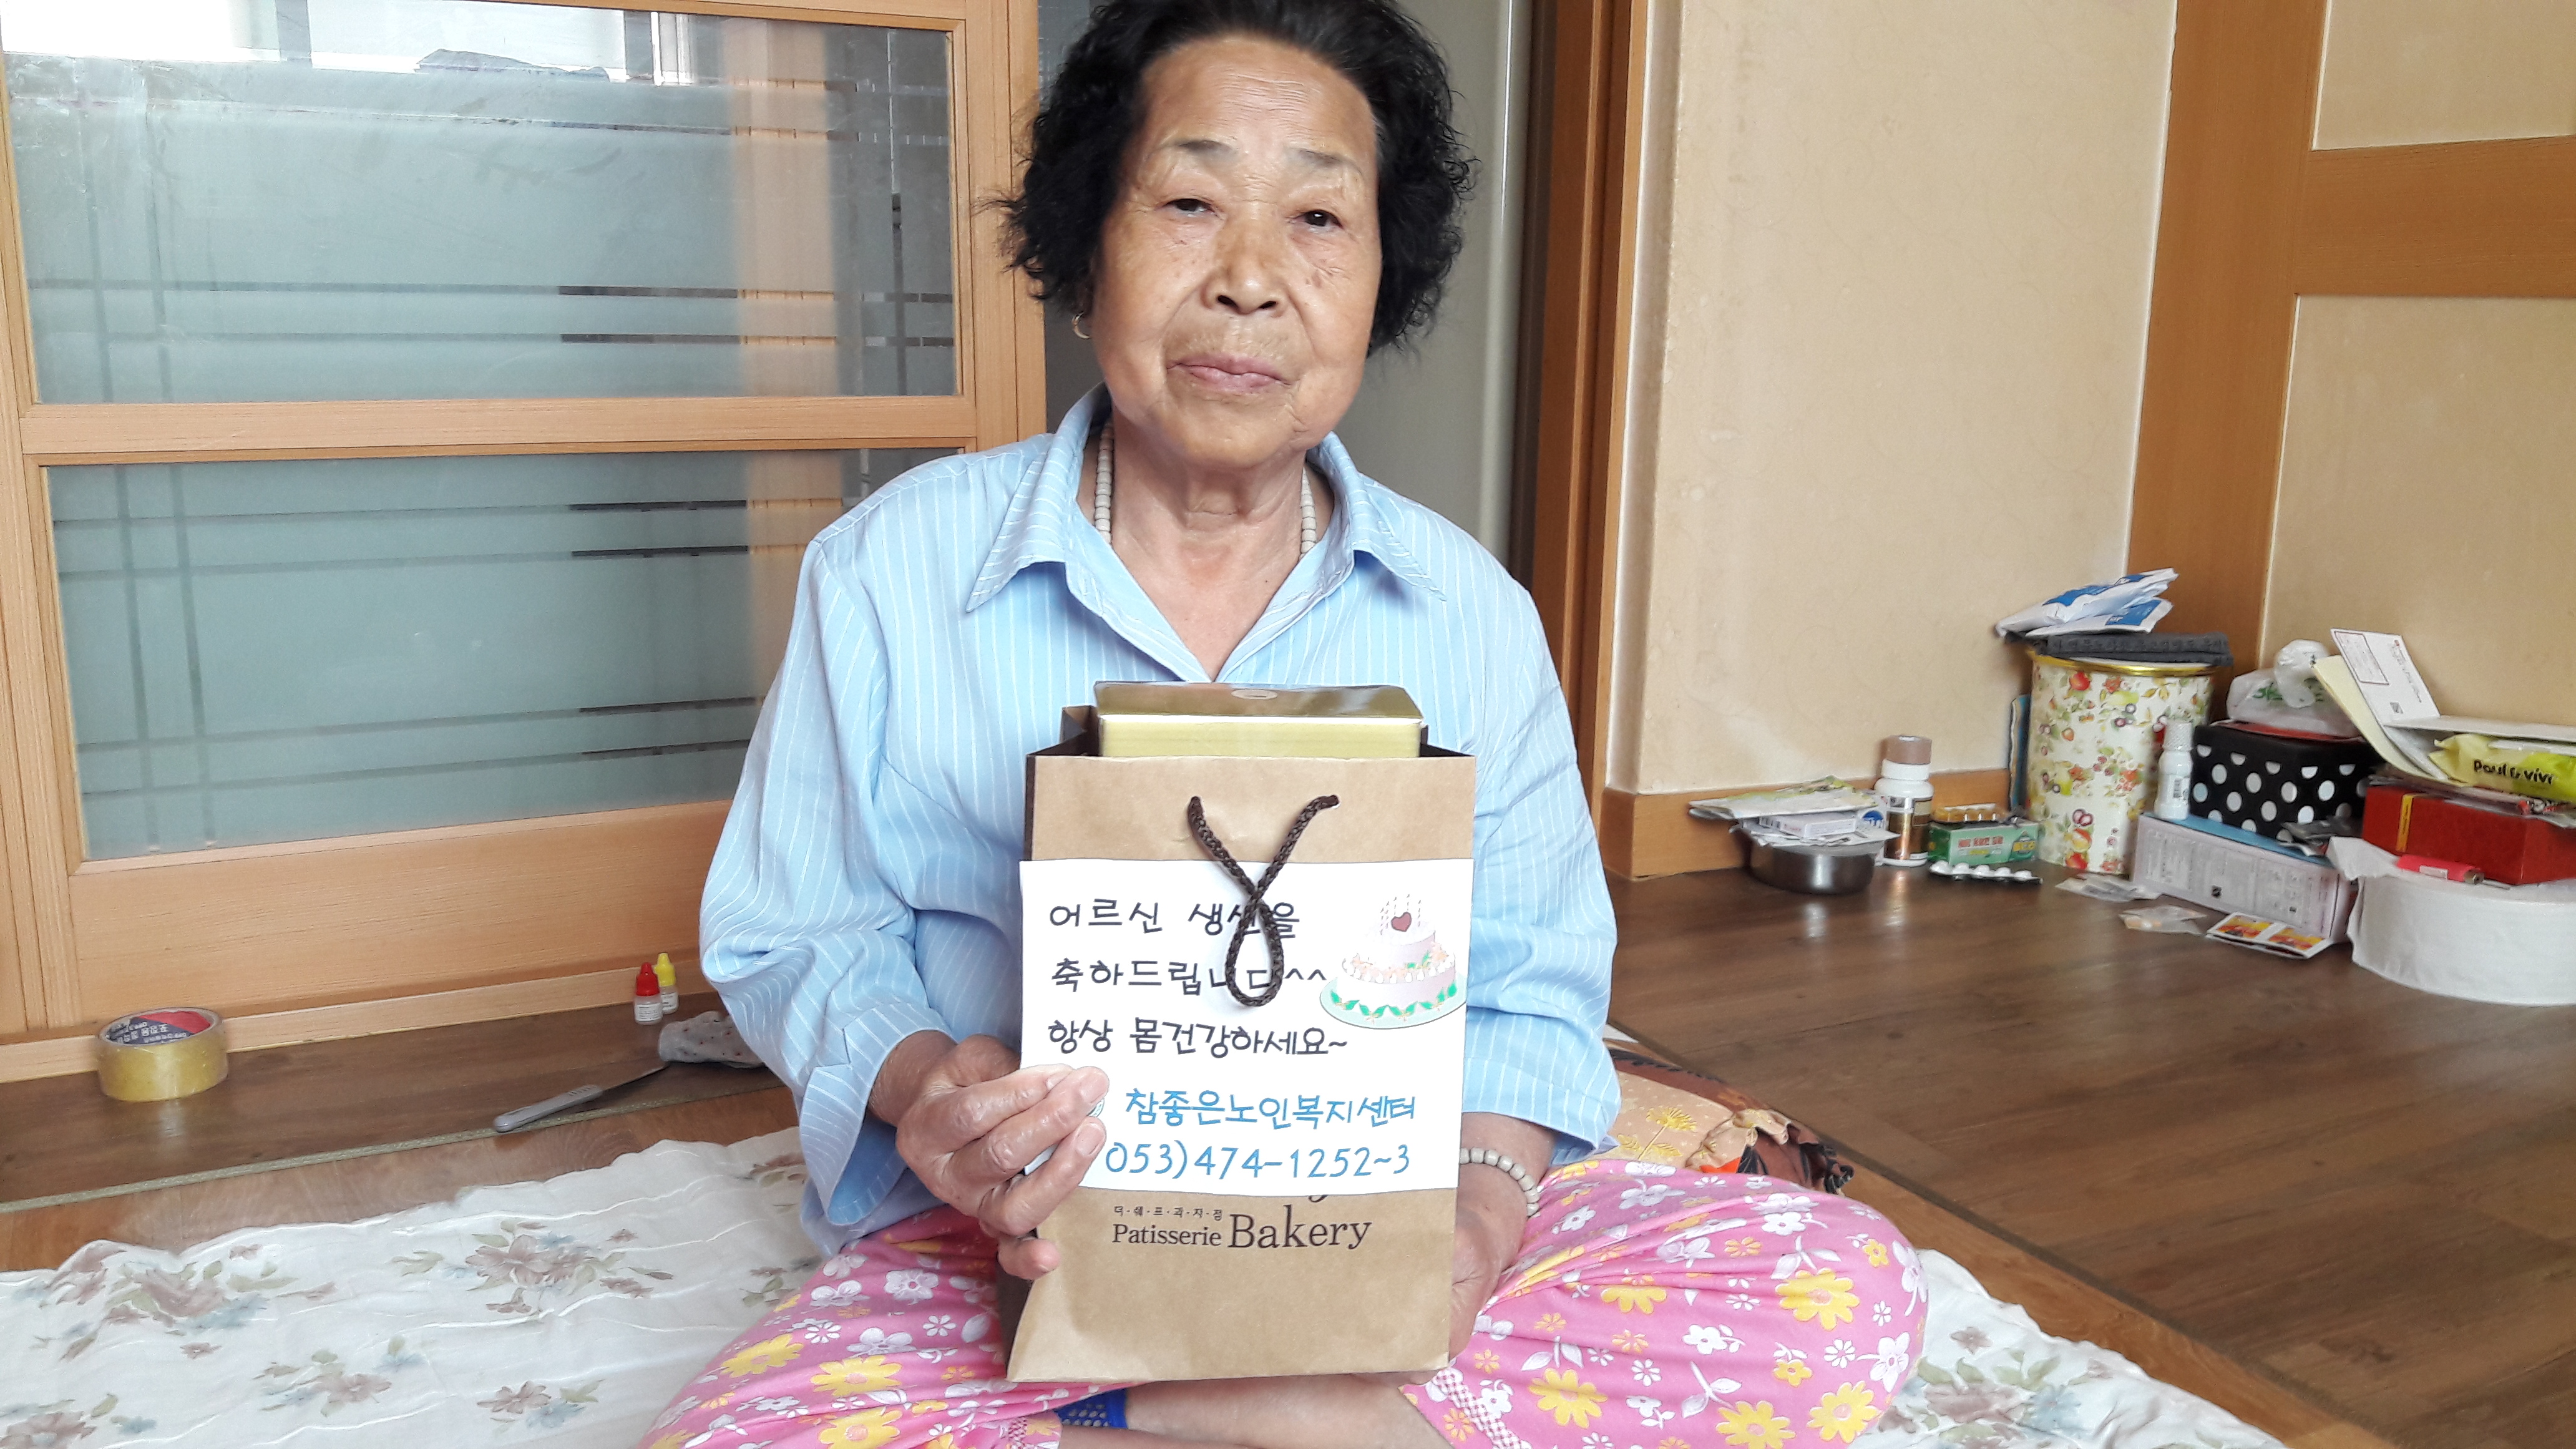 어르신 생신을
축하드립니다^^
항상 몸건강하세요~
참좋은노인복지센터
053)474-1252~3
더·쉐·프·과·자·점
Patisserie Bakery
Paul & vivi